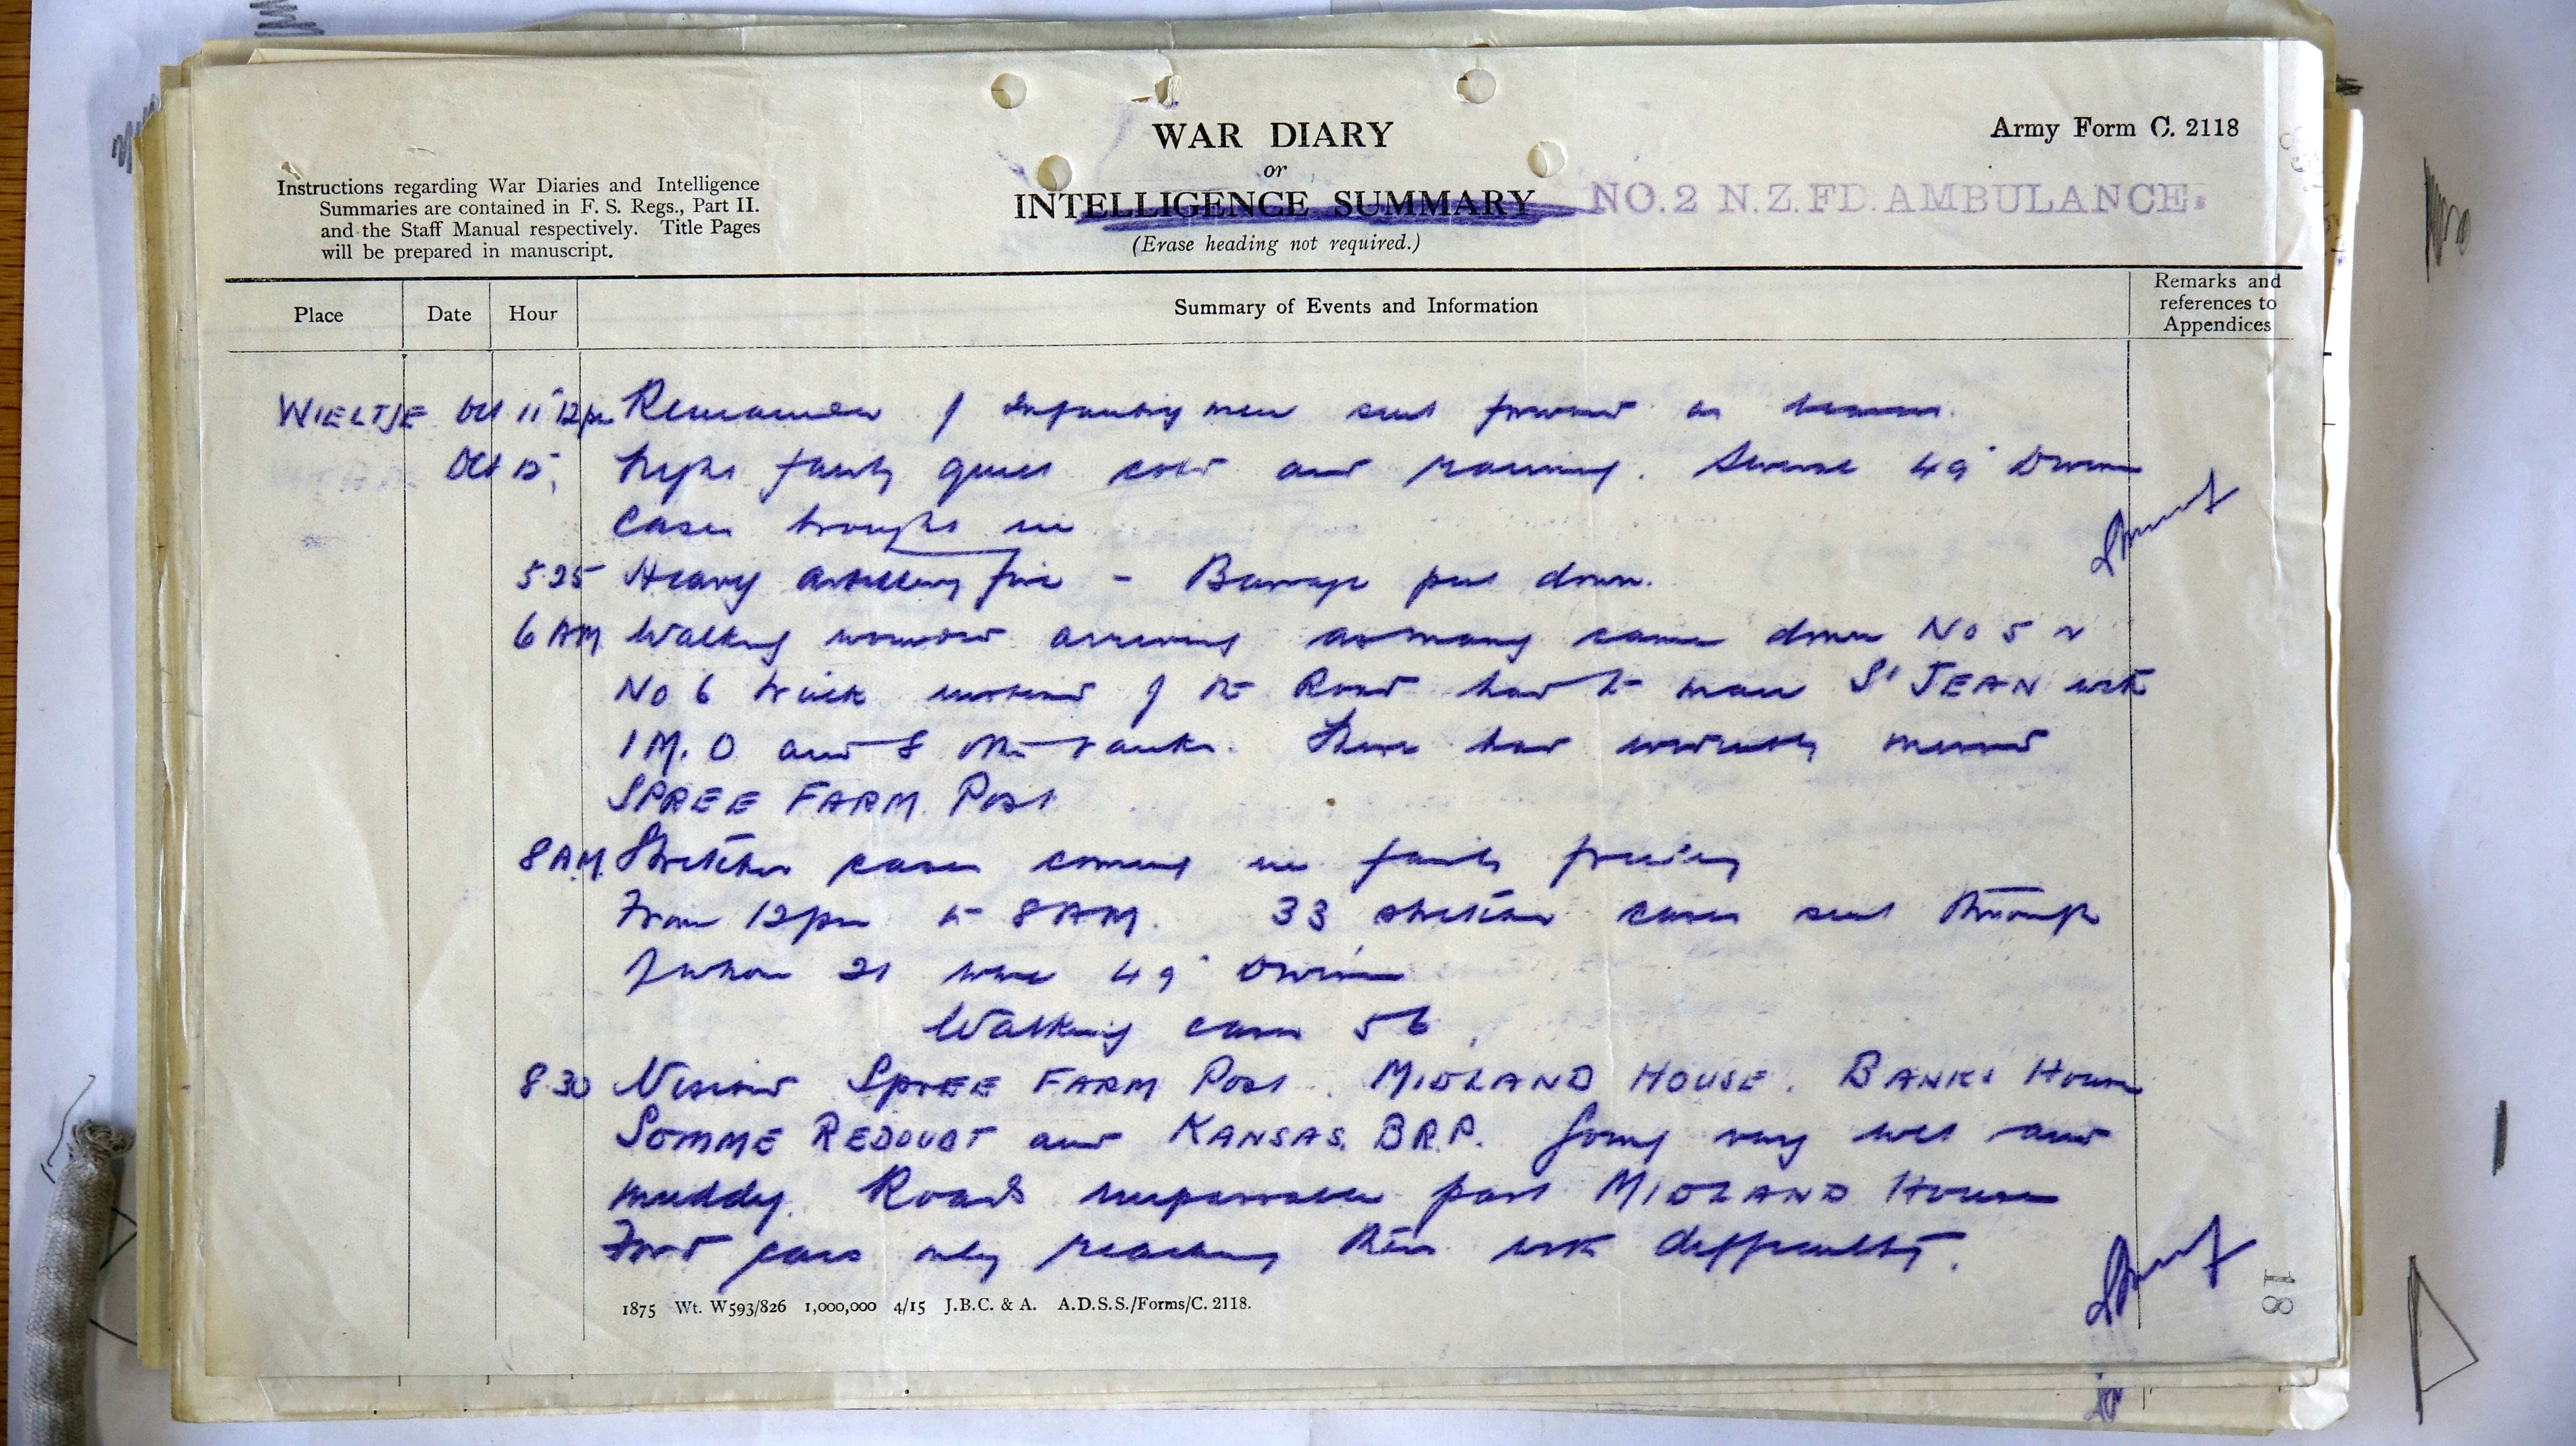 WAR DIARY
or
INTELLIGENCE SUMMARY
(Erase heading not required.)
Army Form C. 2118
NO. 2 N.Z. FD. AMBULANCE.
Instructions regarding War Diaries and Intelligence
Summaries are contained in F. S. Regs., Part II.
and the Staff Manual respectively. Title Pages
will be prepared in manuscript.
Place Date Hour Summary of Events and Information Remarks and references to Appendices
WIELTJE Oct 11 12pm Remainder of Infantry men sent forward as bearers.
Oct 12, Night fairly quiet cold and raining. Several 49 Division
Cases brought in
5.25 Heavy Artillery fire - Barrage put down.
6 AM Walking wounded arriving as many came down No 5 &
No 6 track instead of the Road had to man St JEAN with
1 M.O and 8 other ranks. These had evidently missed
SPREE FARM Post
8 A.M. Stretcher cases coming in fairly freely
From 12pm to 8 AM. 33 stretcher cases sent through
of whom 21 were 49 Division
Walking cases 56
8.30 Visited SPREE FARM Post. MIDLAND HOUSE. BANKS House
SOMME REDOUBT and KANSAS. B.R.P. Going very wet and
muddy. Roads impassable past MIDLAND House
Ford cars only reaching there with difficulty.
1875 Wt. W593/826 1,000,000 4/15 J.B.C. & A. A.D.S.S./Forms/C. 2118.
18